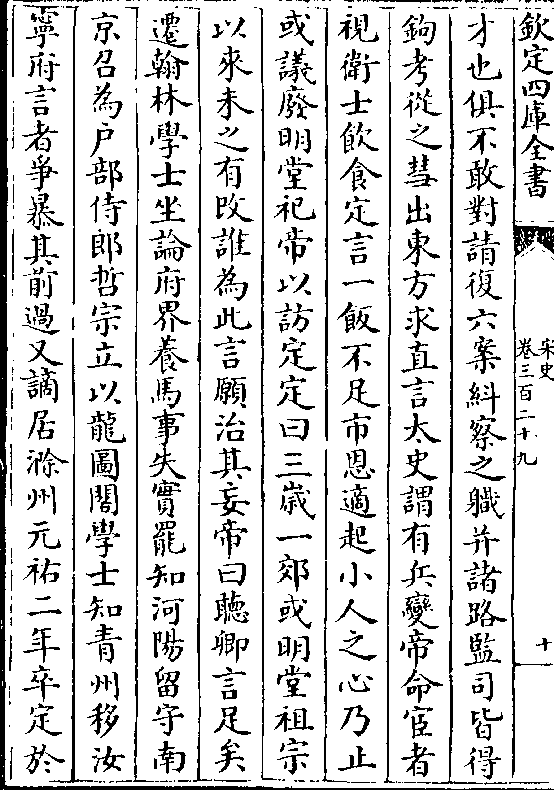 欽定四庫全書
宋史
卷三百二十九
十
才也俱不敢對請復六案糾察之職并諸路監司皆得
鉤考從之彗出東方求直言太史謂有兵變帝命宦者
視衛士飲食定言一飯不足市恩適起小人之心乃止
或議廢明堂祀帝以訪定定曰三歲一郊或明堂祖宗
以來未之有改誰為此言願治其妄帝曰聽卿言足矣
遷翰林學士坐論府界養馬事失實罷知河陽留守南
京召為户部侍郎哲宗立以龍圖閣學士知青州移汝
寧府言者爭暴其前過又謫居滁州元祐二年卒定於